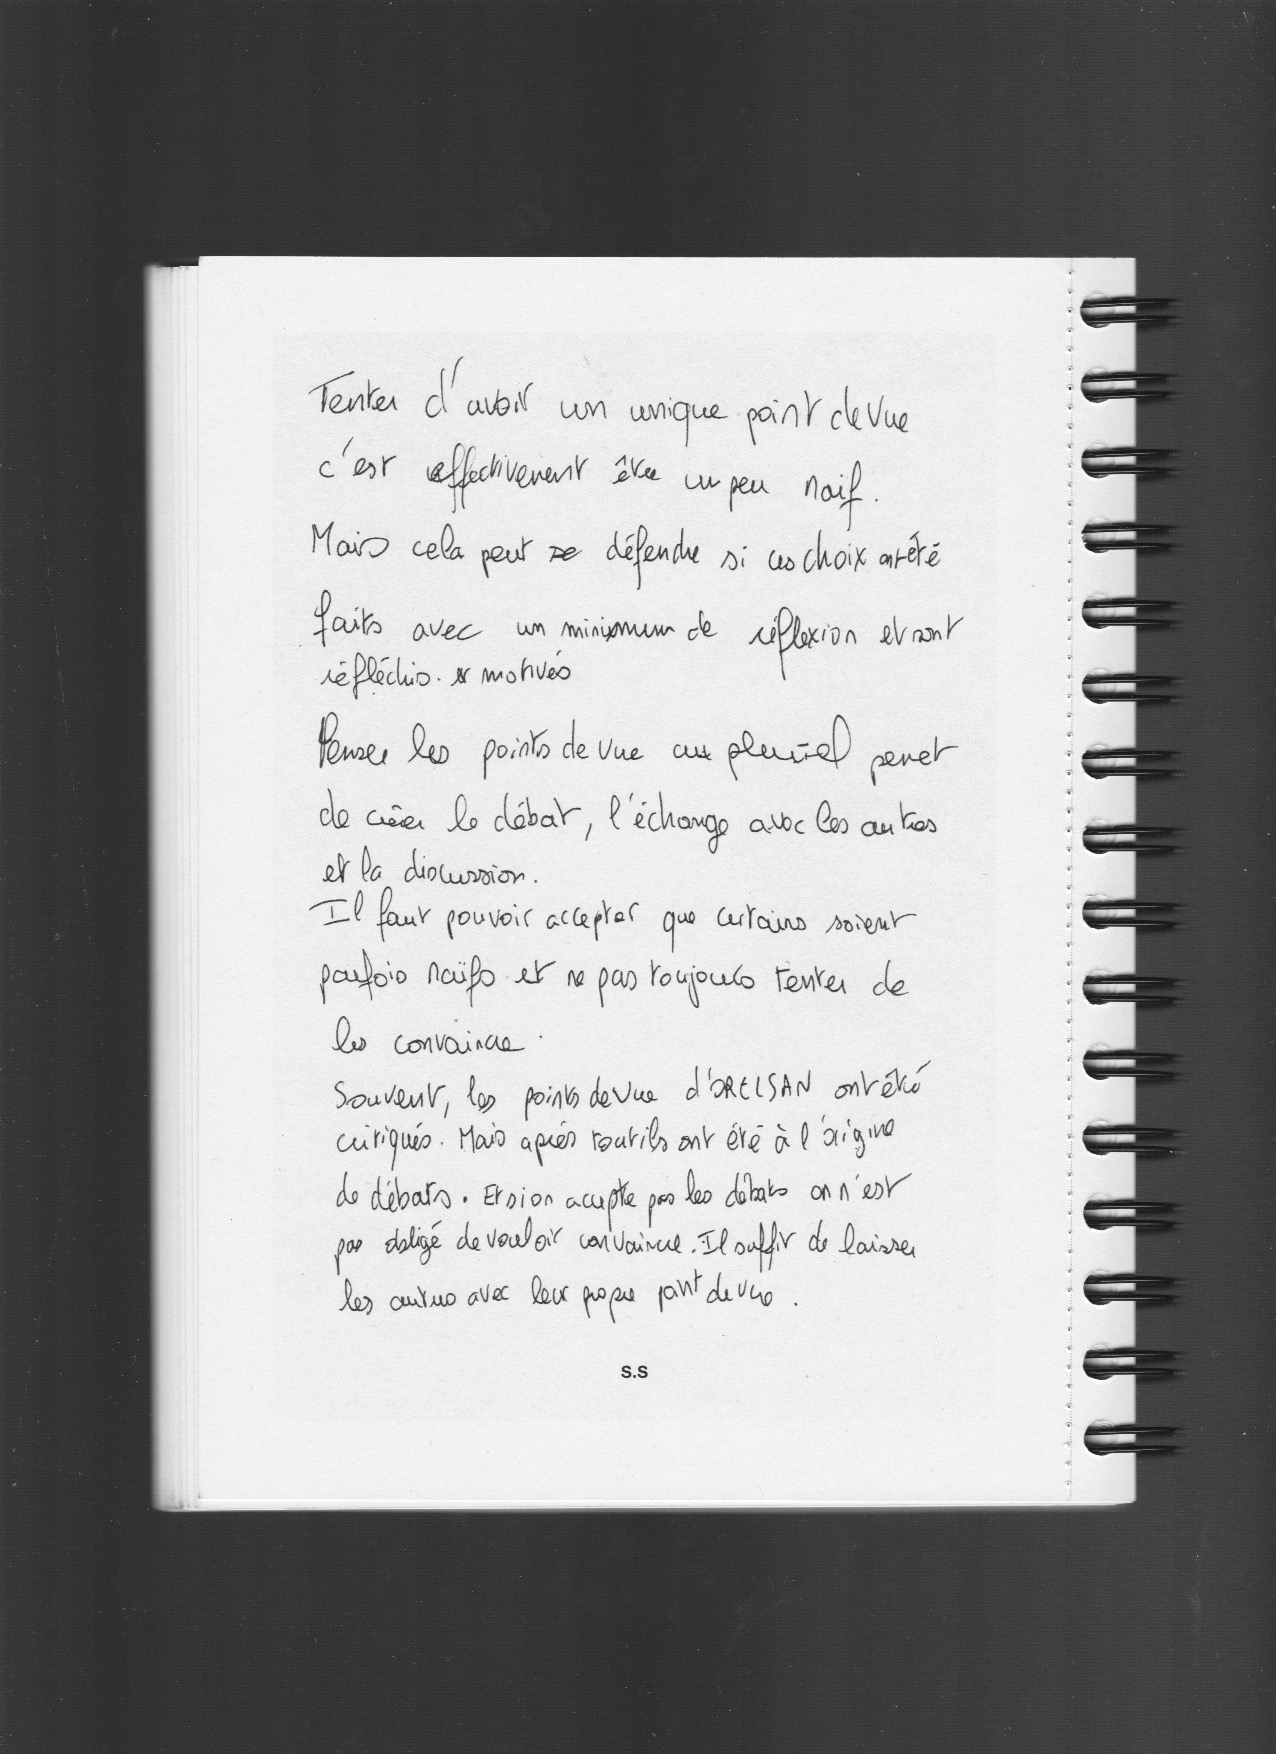 Tenter d'avoir un unique point de vue
c'est effectivement être un peu naif.
Mais cela peut se défendre si ces choix ont été
faits avec un minimum de réflexion et sont
réfléchis. et motivés
Penser les points de vue au pluriel permet
de créer le débat, l'échange avec les autres
et la discussion.
Il faut pouvoir accepter que certains soient
parfois naïfs et ne pas toujours tenter de
les convaincre.
Souvent, les points de vue d'ORELSAN ont été
critiqués. Mais après tout ils ont été à l'origine
de débats. Et si on accepte pas les débats on n'est
pas obligé de vouloir convaincre. Il suffit de laisser
les autres avec leur propre point de vue.
S.S